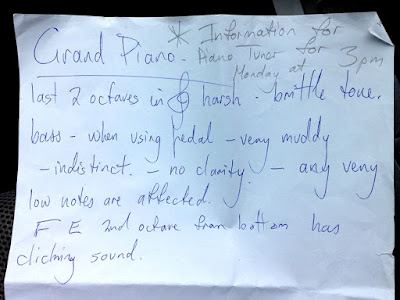 Grand Piano - * Information for
Piano Tuner for 3pm
Monday at
last 2 octaves in 𝄞 harsh - brittle tone.
bass - when using pedal - very muddy
- indistinct. - no clarity - any very
low notes are affected.
F E 2nd octave from bottom has
clicking sound.